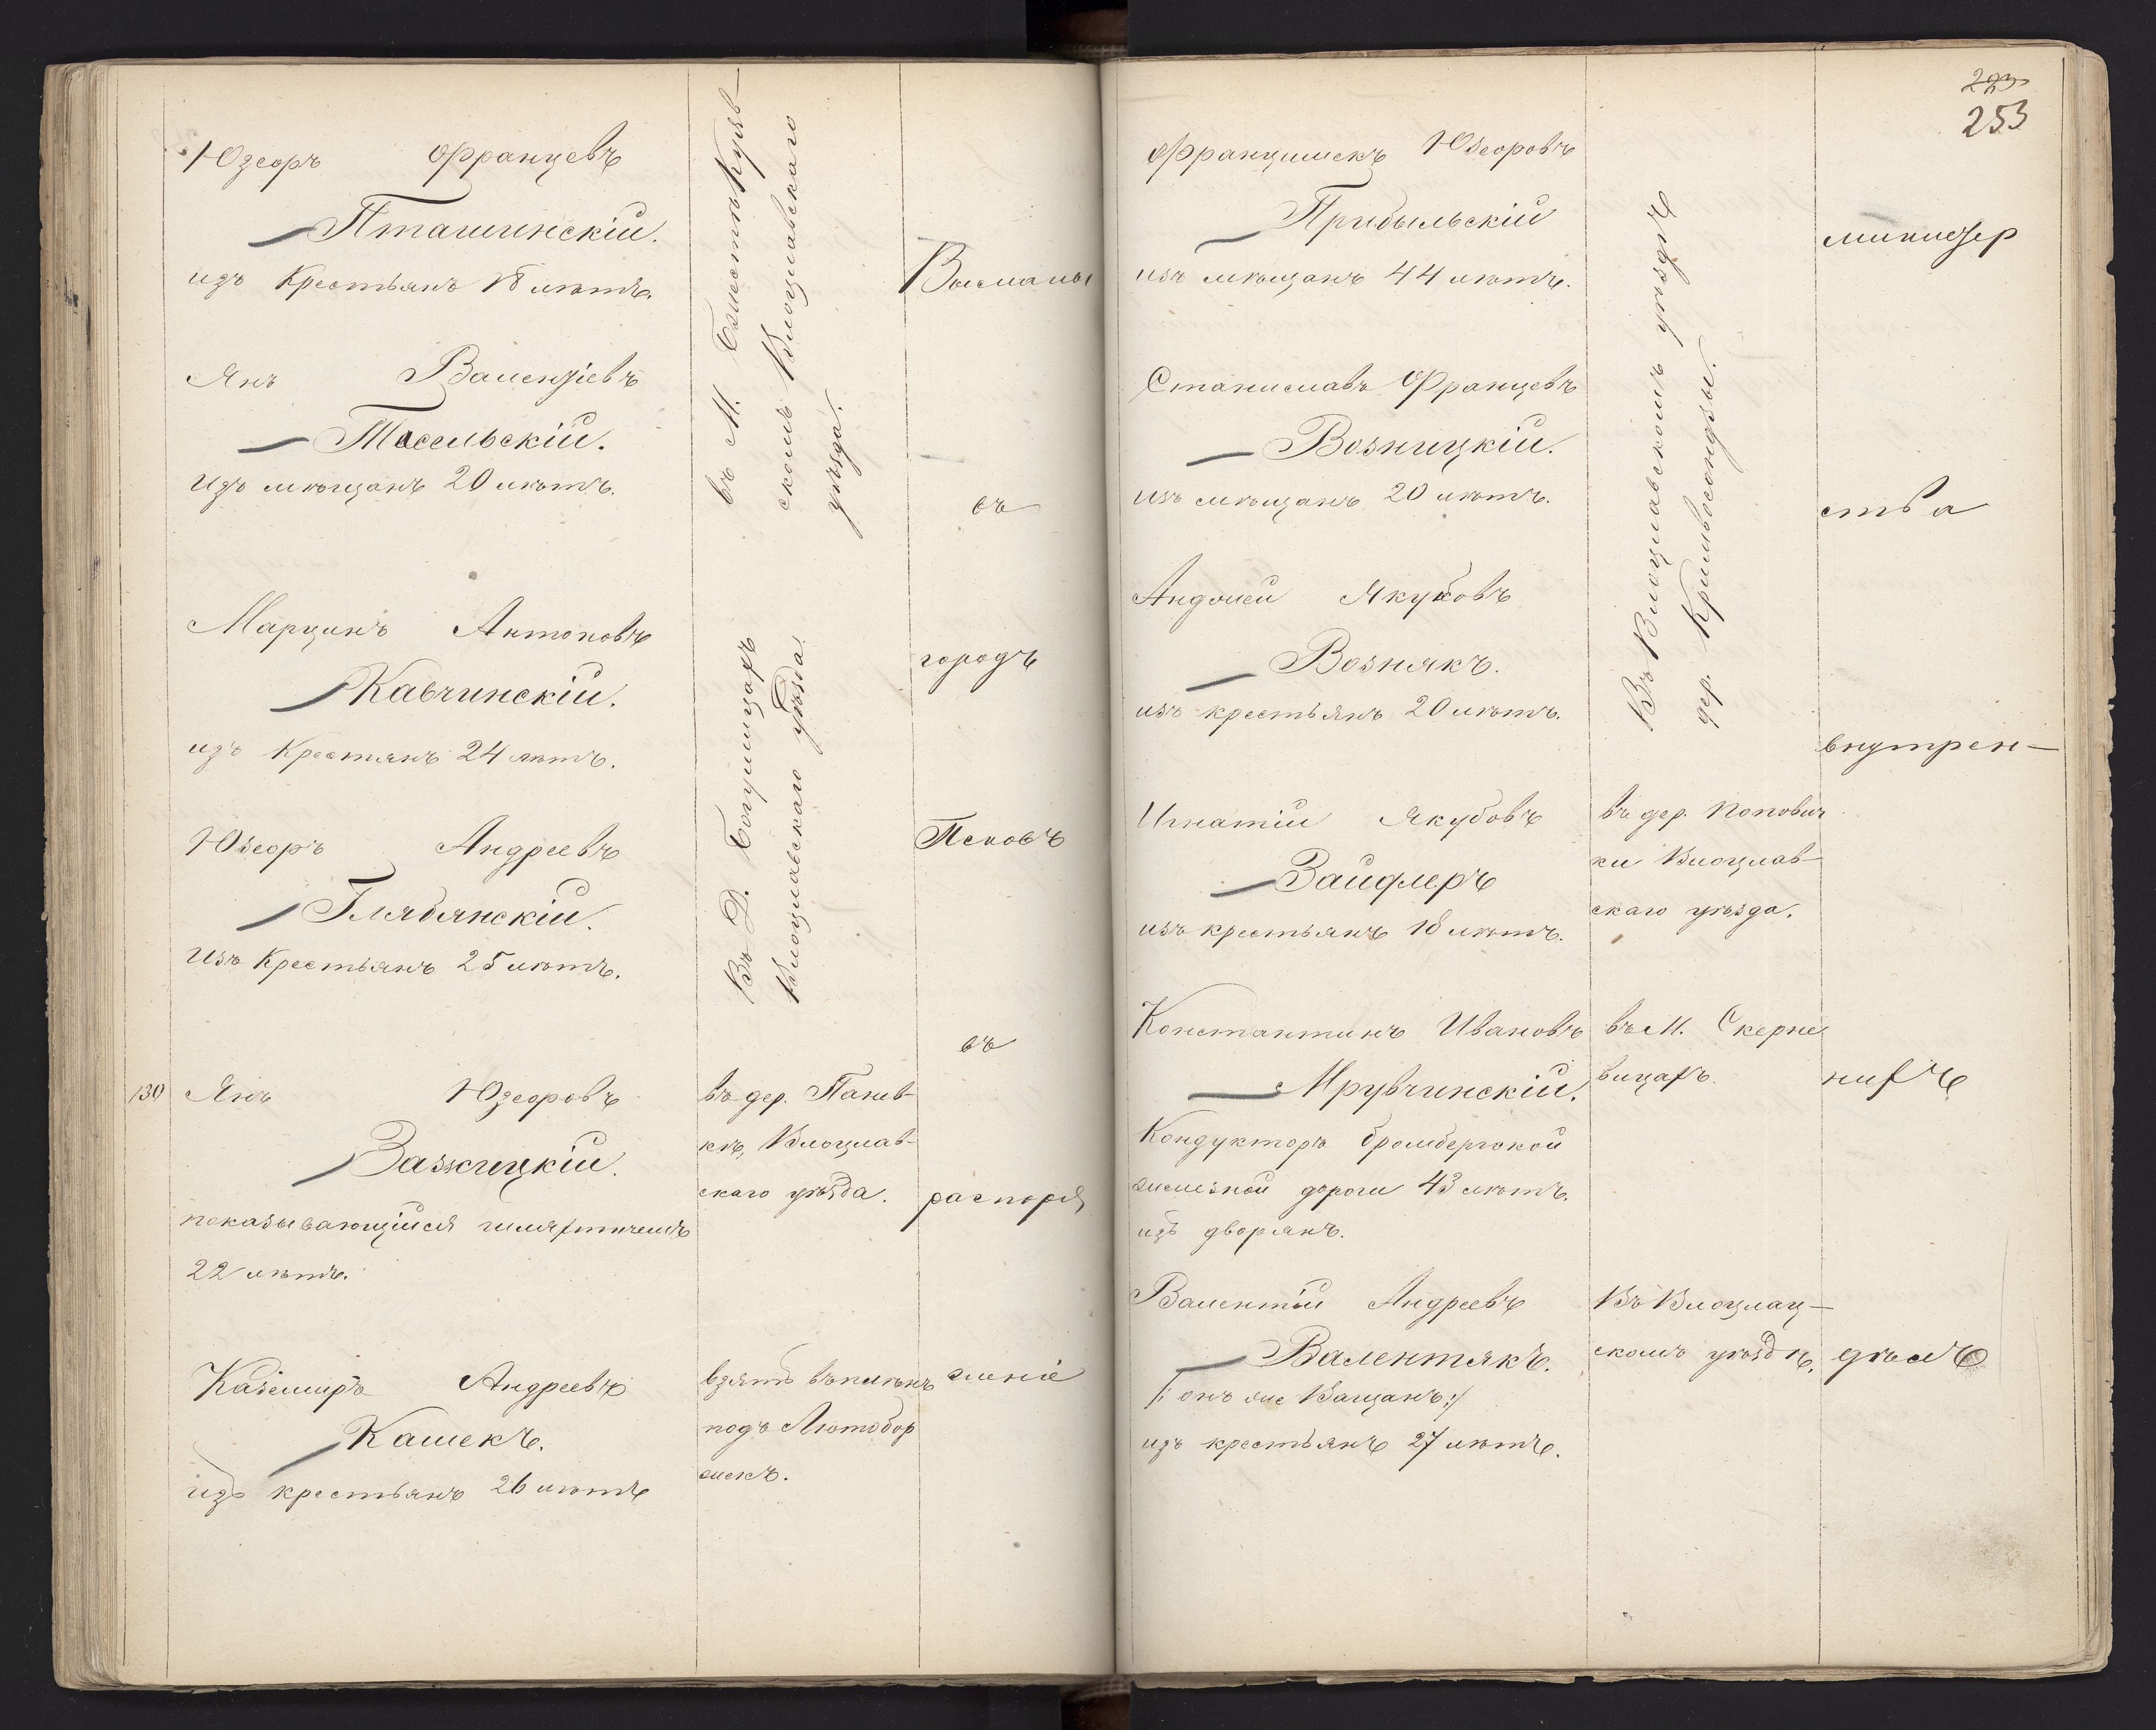 Юзефъ Францевъ
Пташинскій.
изъ Крестьянъ 18 лѣтъ.
Янъ Валентіевъ
Тасельскій.
изъ мѣщанъ 20 лѣтъ.
въ М.
скомъ Влоцлавскаго
уѣзда.
Марцинъ Антоновъ
Кавчинскій.
изъ Крестянъ 24 лѣтъ.
Юзефъ Андреевъ
Глябянскій.
изъ Крестьянъ 25 лѣтъ.
Въ Д.
Влоцлавскаго уѣзда.
130 Янъ Юзефовъ
Зазжицкій.
показывающійся шляхтичемъ
22 лѣтъ.
въ дер. Панев-
кѣ, Влоцлав-
скаго уѣзда.
Казимиръ Андреевъ
Кашекъ.
изъ крестьянъ 26 лѣтъ
взятъ въ плѣнъ
подъ Лютобор
скъ.
Высланы
въ
городъ
Псковъ
въ
распоря
женіе
253
Францишекъ Юзефовъ
Прибыльскій
изъ мѣщанъ 44 лѣтъ.
Станиславъ Францевъ
Возницкій.
изъ мѣщанъ 20 лѣтъ.
Анджей Якубовъ
Вознякъ.
изъ крестьянъ 20 лѣтъ.
Въ Влоцлавскомъ уѣздѣ
дер.
Игнатій Якубовъ
Зайдлеръ
изъ крестьянъ 18 лѣтъ.
въ дер. Попович
ки Влоцлав-
скаго уѣзда.
Константинъ Ивановъ
Мрувчинскій.
Кондукторъ бромбергской
желѣзной дороги 43 лѣтъ.
изъ дворянъ.
въ М. Скерне
вицахъ.
Валентій Андреевъ
Валентякъ.
/: онъ же Ващанъ:/
изъ крестьянъ 27 лѣтъ.
Въ Влоцлац-
скомъ уѣздѣ.
министер
ства
внутрен-
нихъ
дѣлъ